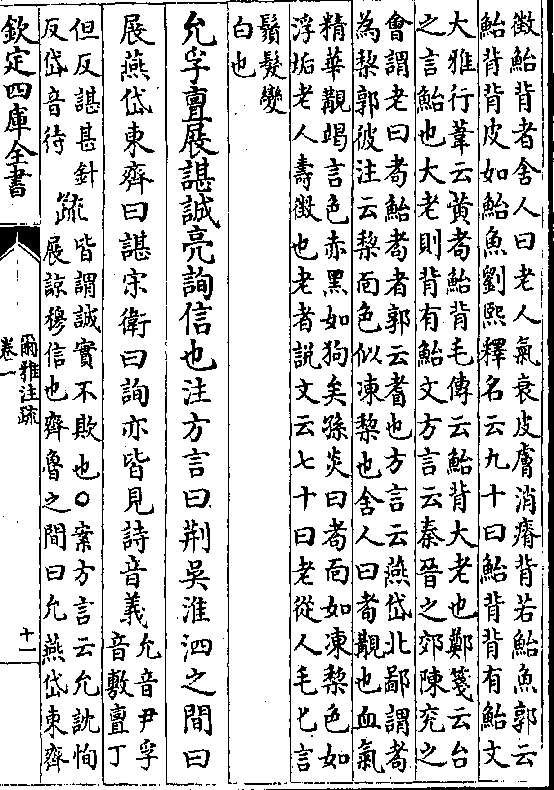 徵鮐背者舍人曰老人氣衰皮膚消瘠背若鮐魚郭云
鮐背背皮如鮐魚劉熙釋名云九十曰鮐背背有鮐文
大雅行葦云黃耇鮐背毛傳云鮐背大老也鄭箋云台
之言鮐也大老則背有鮐文方言云秦晉之郊陳兖之
會謂老曰耇鮐耇者郭云耆也方言云燕岱北鄙謂耇
為棃郭彼注云棃面色似凍棃也舍人曰耇覯也血氣
精華覯竭言色赤黑如狗矣孫炎曰耇面如凍棃色如
浮垢老人壽徵也老者說文云七十曰老從人毛匕言
鬚髮變
白也
允孚亶展諶誠亮詢信也注方言曰荆吳淮泗之間曰
展燕岱東齊曰諶宋衛曰詢亦皆見詩音義
允音尹孚
音敷亶丁
但反諶甚針
反岱音待
疏
皆謂誠實不欺也○案方言云允訦恂
展諒穆信也齊魯之間曰允燕岱東齊
欽定四庫全書
爾雅注疏
卷一
十一